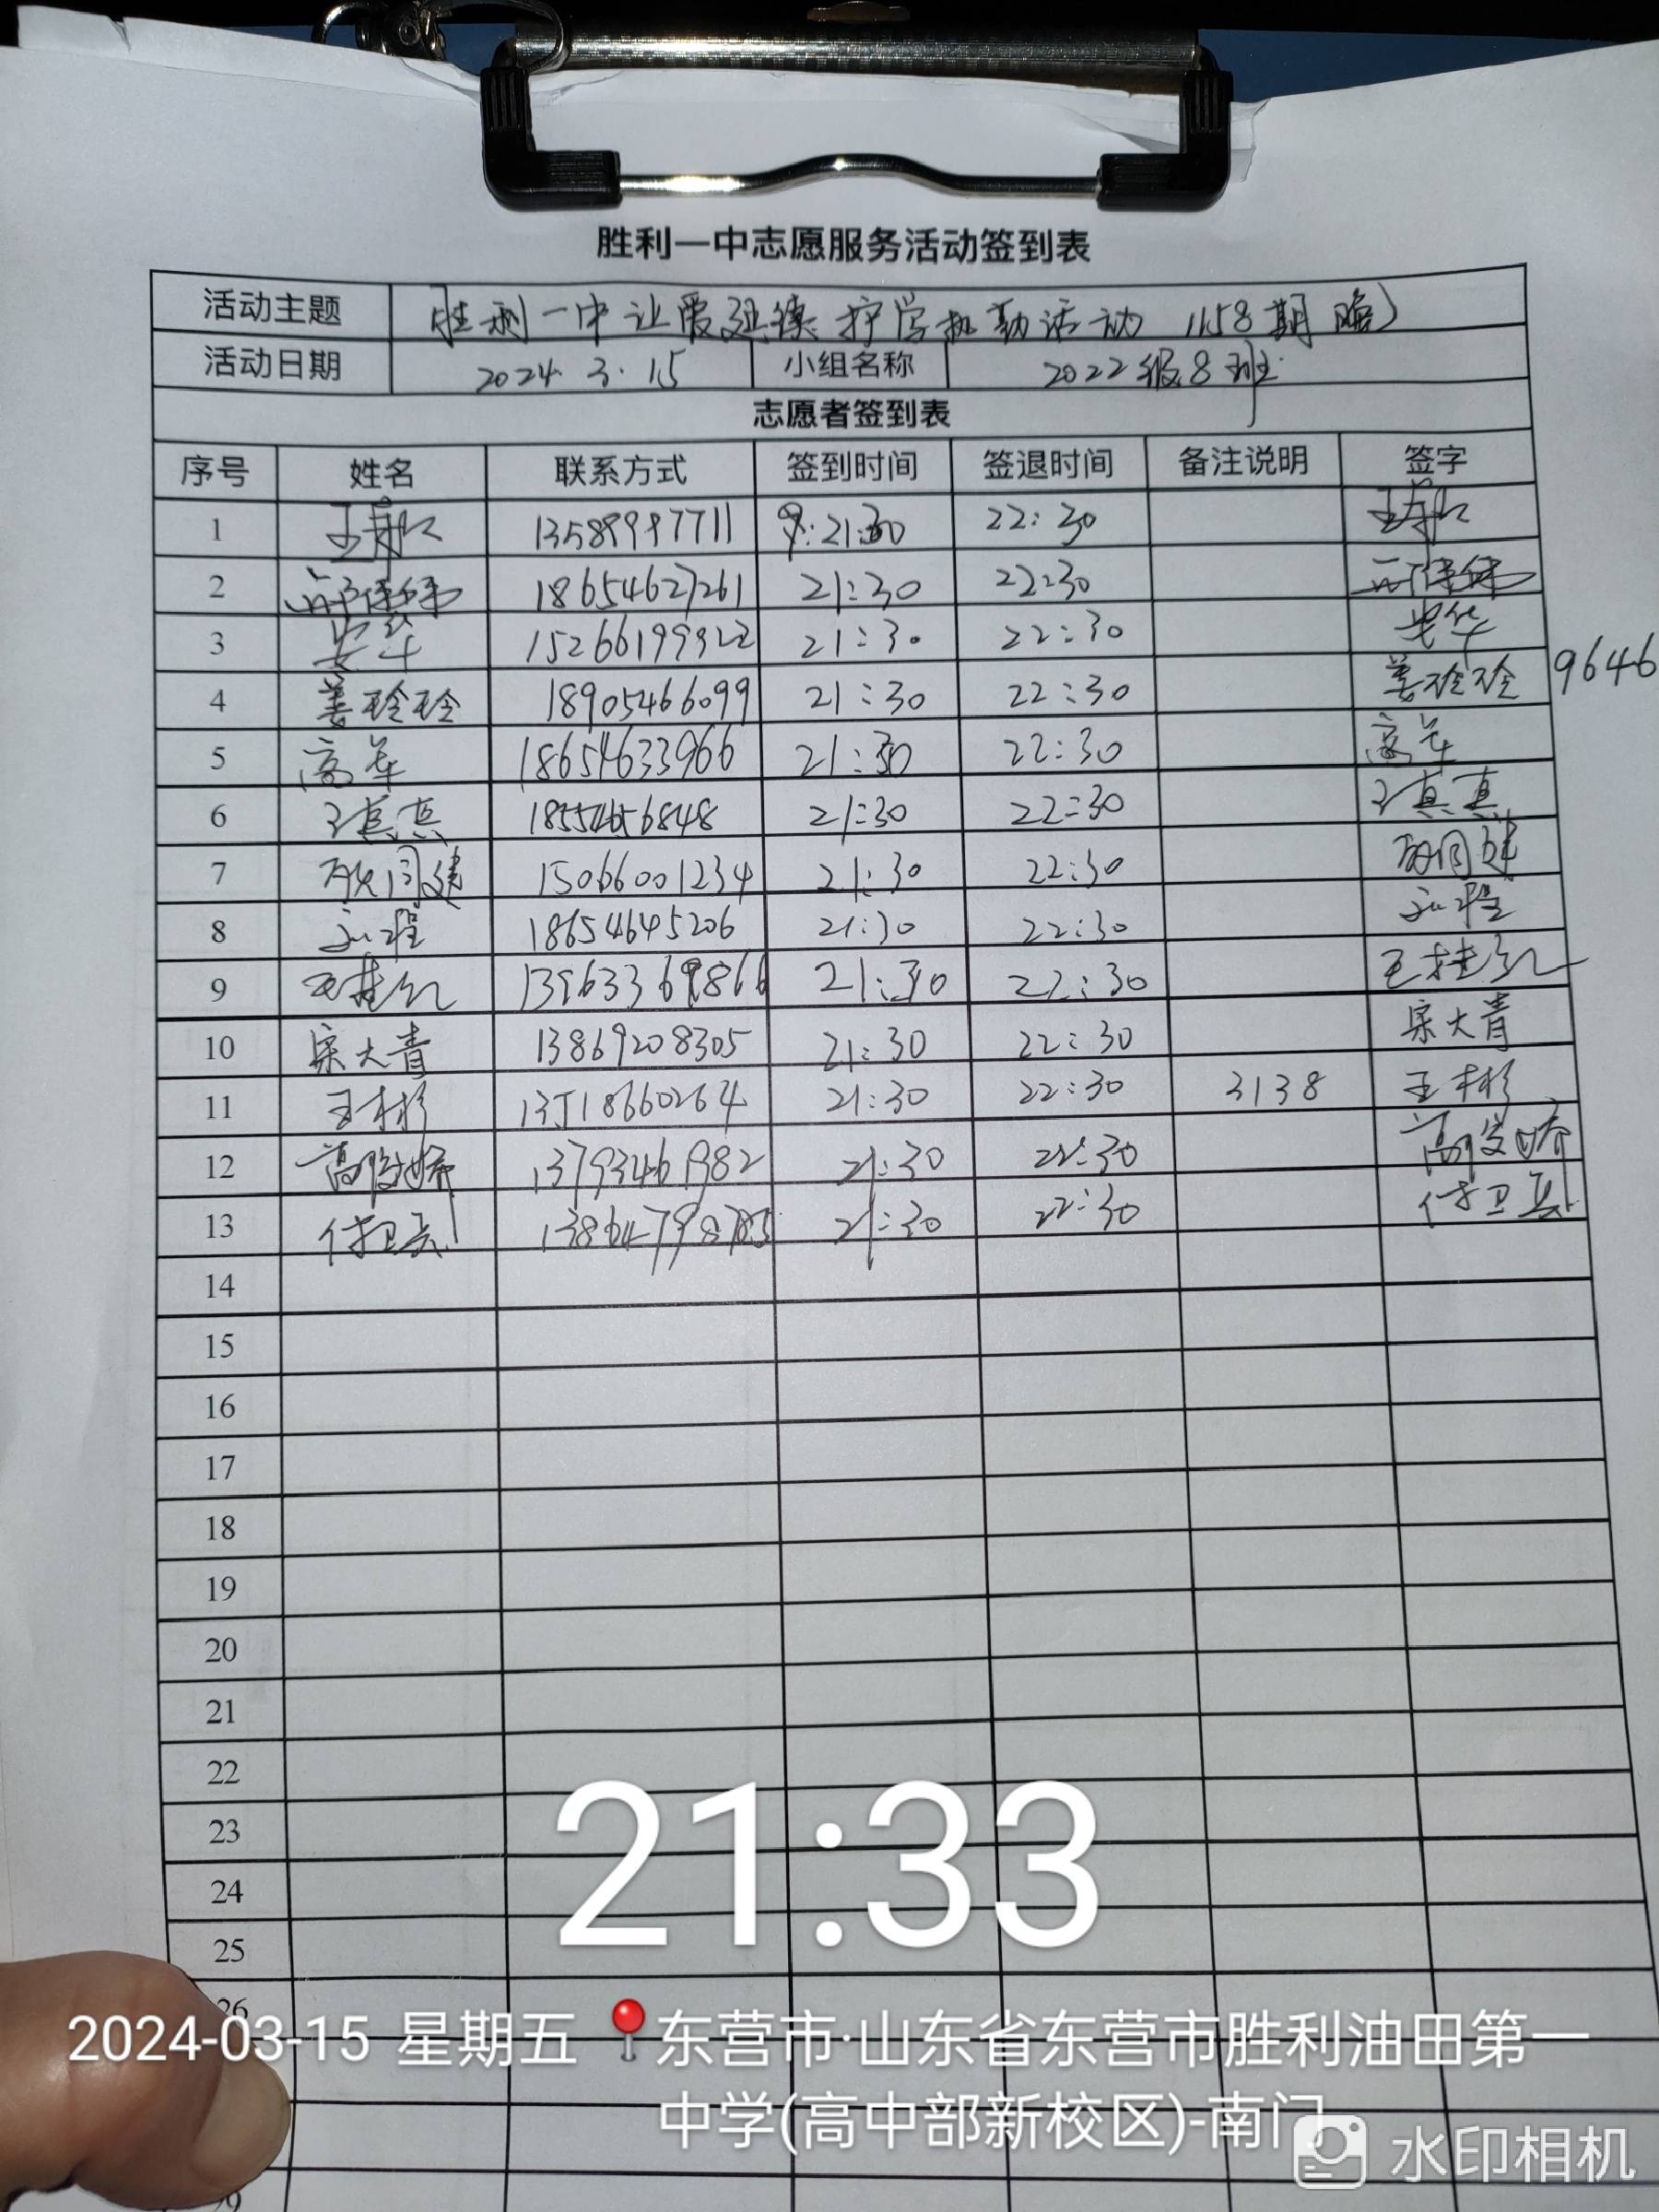 胜利一中志愿服务活动签到表
活动主题 胜利一中让爱延续护学执勤活动 1158期 晚)
活动日期 2024.3.15 小组名称 2022级8班
志愿者签到表
序号 姓名 联系方式 签到时间 签退时间 备注说明 签字
1 13589997711 21:30 22:30
2 18654627261 21:30 22:30
3 15266199322 21:30 22:30
4 姜玲玲 18905466099 21:30 22:30 姜玲玲 9646
5 高华 18654633966 21:30 22:30 高华
6 真真 21:30 22:30 真真
7 15066001234 21:30 22:30
8 18654645206 21:30 22:30
9 王桂红 21:30 22:30 王桂红
10 宋大青 13869208305 21:30 22:30 宋大青
11 王彬彬 13518660264 21:30 22:30 3138 王彬彬
12 高俊娇 13793461982 21:30 22:30 高俊娇
13 付卫兵 21:30 22:30 付卫兵
14
15
16
17
18
19
20
21
22
23
24
25
26
29
21:33
2024-03-15 星期五 东营市·山东省东营市胜利油田第一
中学(高中部新校区)-南门
水印相机